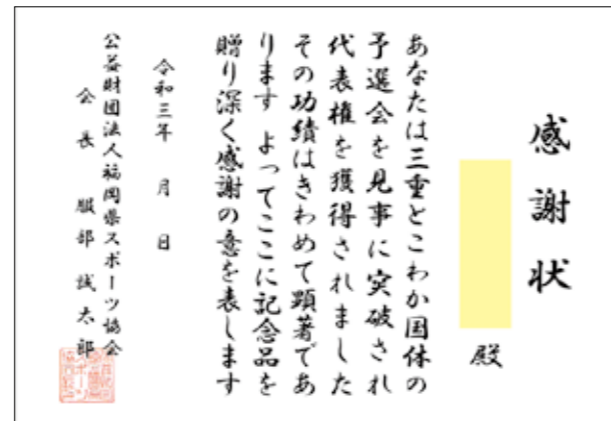 感謝状
殿
あなたは三重とこわか国体の
予選会を見事に突破され
代表権を獲得されました
その功績はきわめて顕著であ
ります よってここに記念品を
贈り深く感謝の意を表します
令和三年 月 日
公益財団法人福岡県スポーツ協会
会長 服部誠太郎